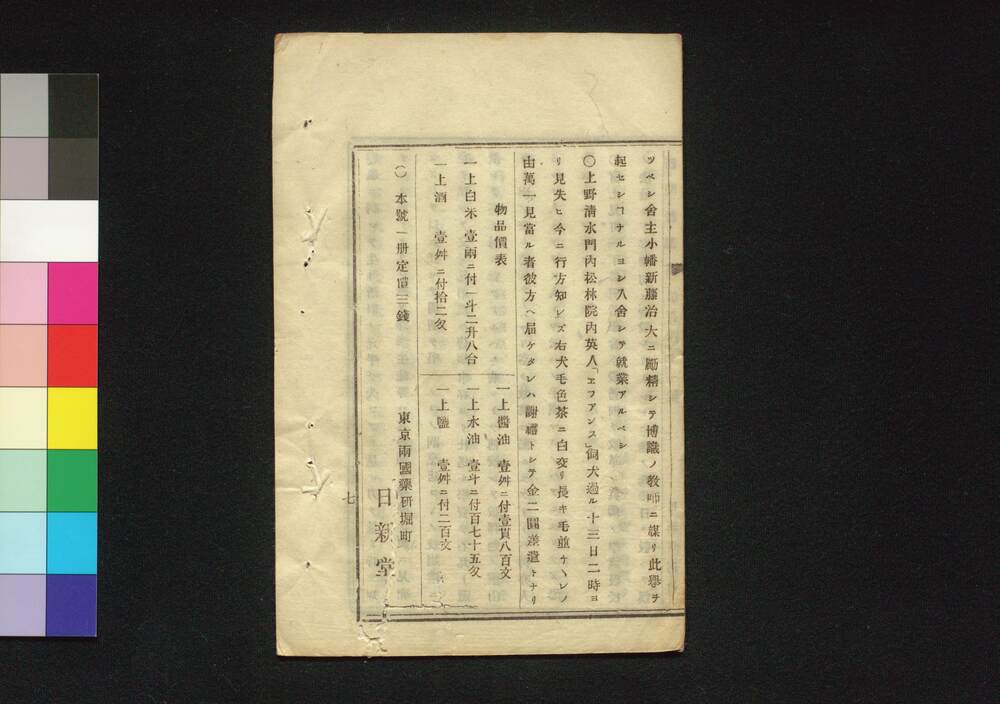 ツベシ舍主小幡新藤治大ニ勵精シテ博識ノ敎師ニ謀リ此擧ヲ
起セシヿナルヨシ入舍シテ就業アルベシ
〇上野淸水門內松林院內英人「エフアンス」飼犬過ル十三日二時ヨ
リ見失ヒ今ニ行方知レズ右犬毛色茶ニ白交リ長キ毛並ケヽレノ
由萬一見當ル者彼方ヘ届ケタレハ謝禮トシテ金二圓差遣トナリ
物品價表
一上白米 壹兩ニ付一斗二升八合
一上酒 壹舛ニ付拾二匁
一上醬油 壹舛ニ付壹貫八百文
一上水油 壹斗ニ付百七十五匁
一上鹽 壹舛ニ付二百文
〇本號一册定價三錢
東京兩國藥硏堀町
日新堂
七